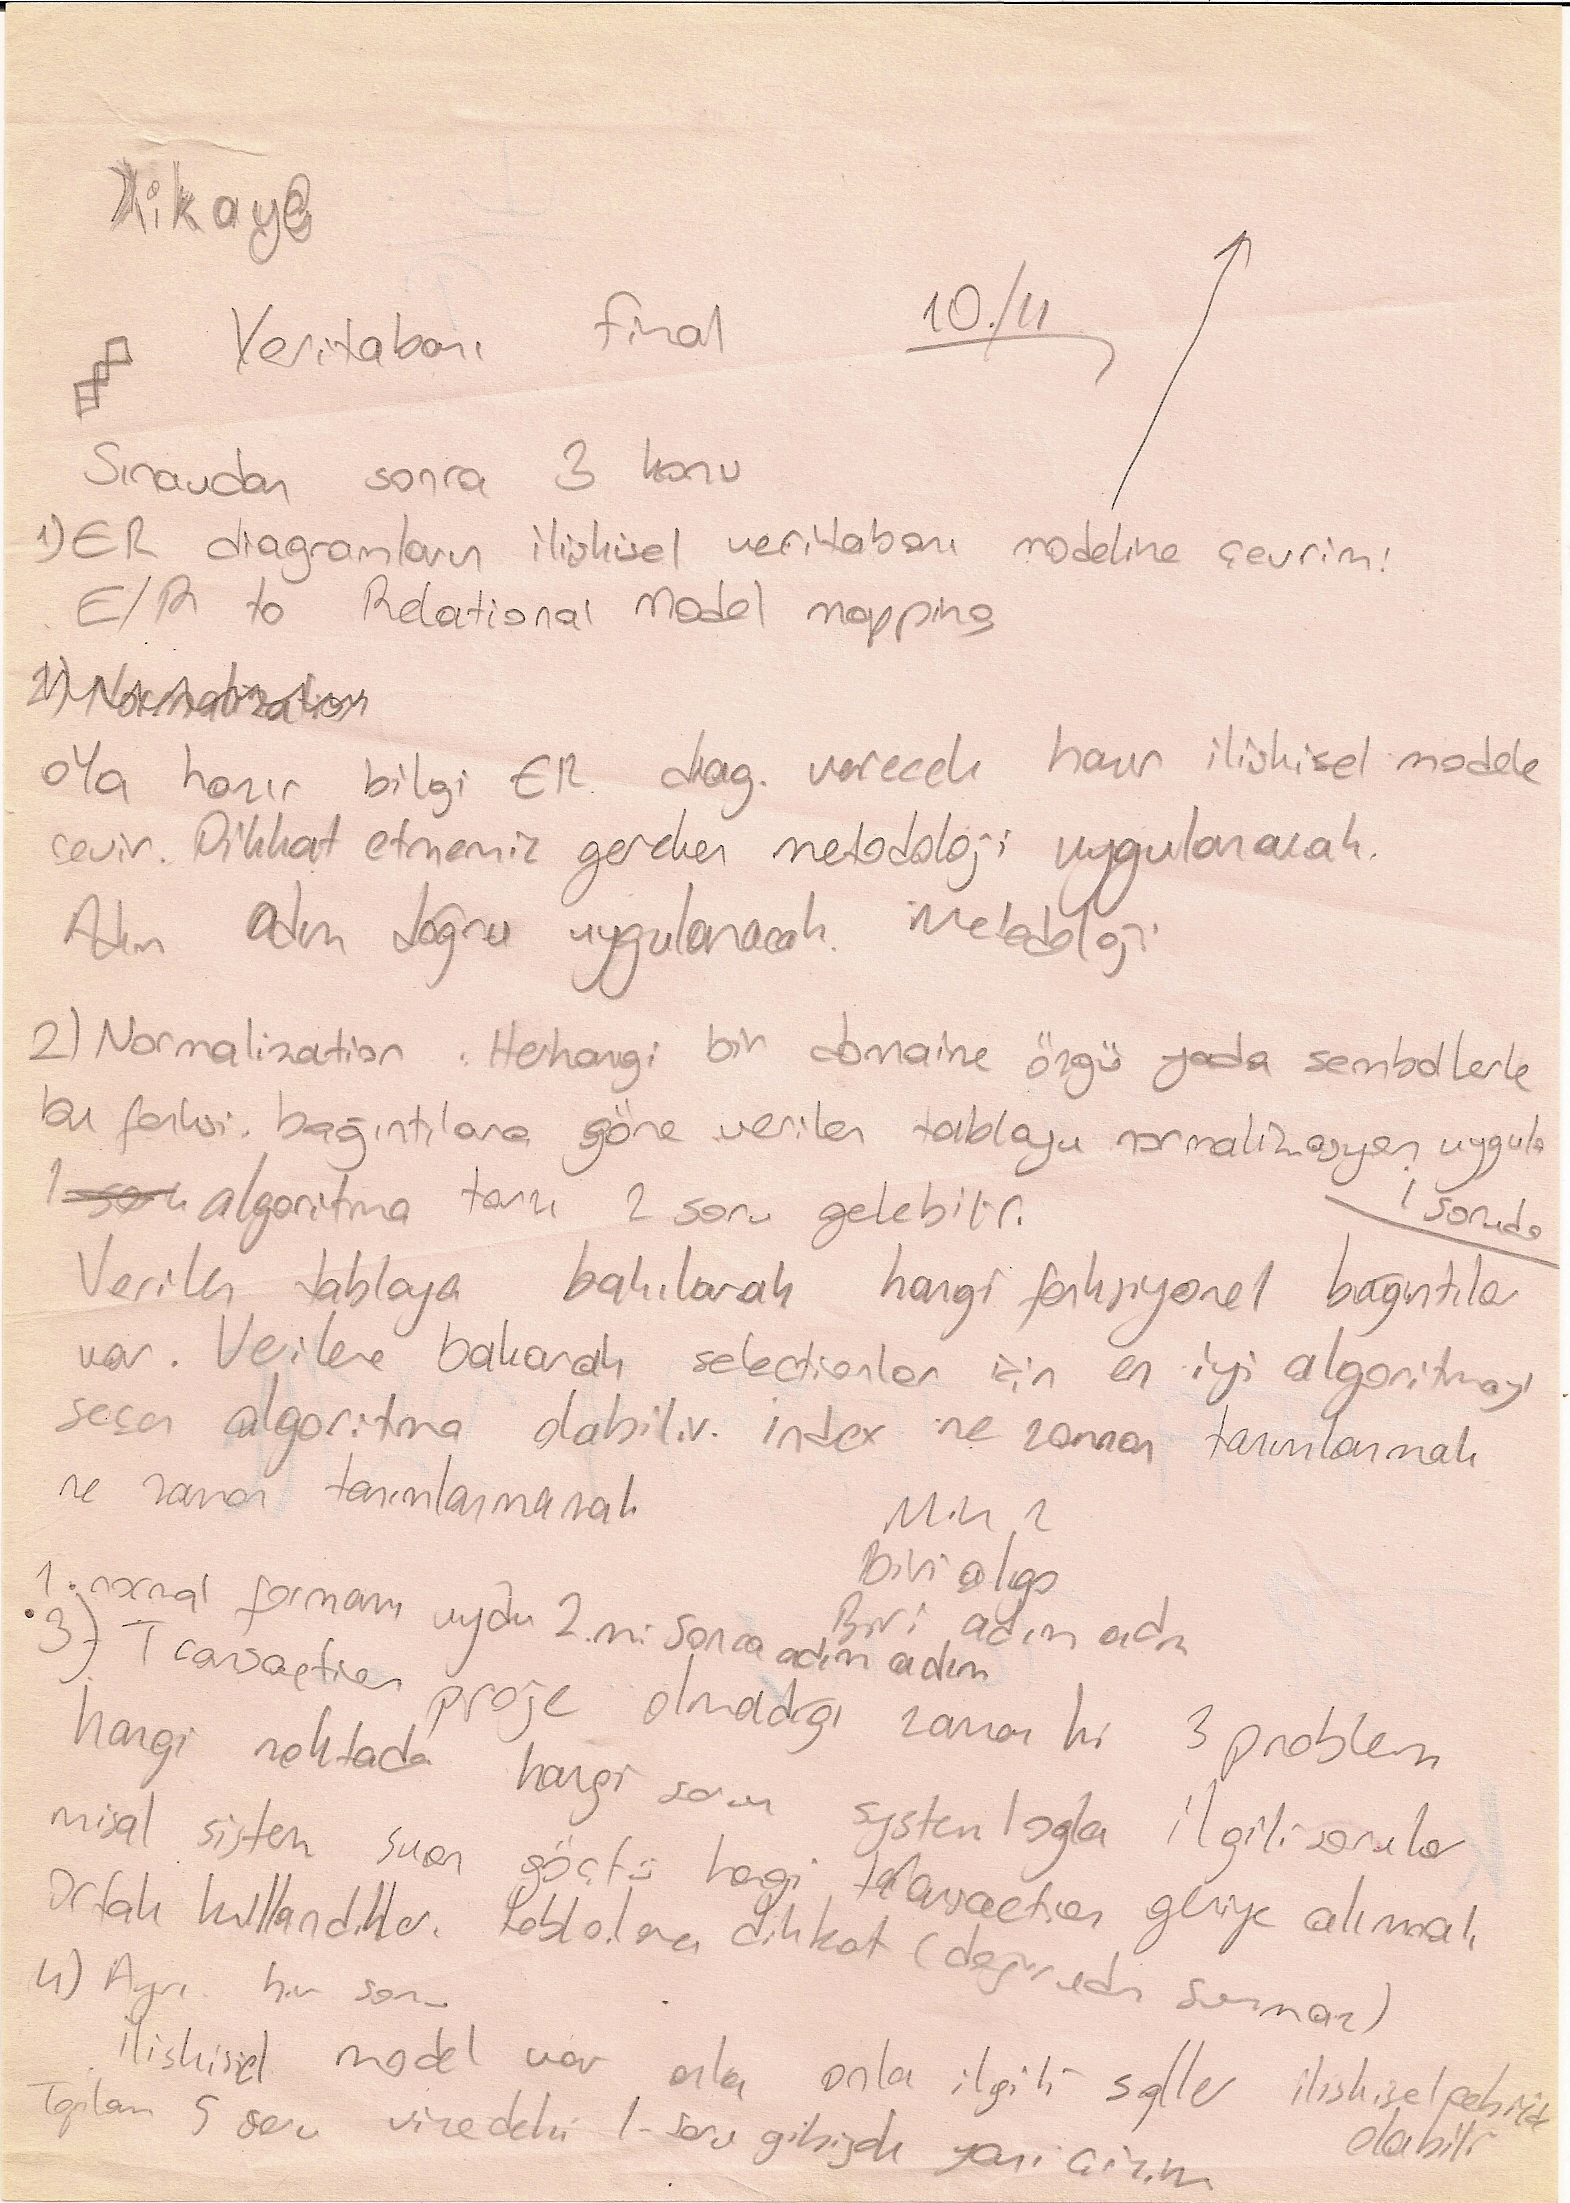 Hikaye
Veritabanı final 10./11
Sınavdan sonra 3 konu
1) ER diagramların ilişkisel veritabanı modeline çevrimi
E/R to Relational Model mapping
2) Normalization
o Ya hazır bilgi ER diag. verecek hazır ilişkisel modele
çevir. Dikkat etmemiz gereken metodoloji uygulanacak.
Adım adım doğru uygulanacak. Metodoloji
2) Normalization : Herhangi bir domaine özgü yada sembollerle
bu fonksi. bağıntılara göre verilen tabloyu normalizasyon uygula
1 soruda
1 soru algoritma tarzı 2 soru gelebilir.
Verilen tabloya bakılarak hangi fonksiyonel bağıntılar
var. Verilere bakarak selectionlar için en iyi algoritmayı
seçen algoritma olabilir. index ne zaman tanımlanmalı
ne zaman tanımlanmamalı
Min 2
Biri algo
Biri adım adım
1. normal formanı uydu 2. mi sonra adım adım
3) Transaction proje olmadığı zaman ki 3 problem
hangi noktada hangi sorun system logla ilgili sorular
misal sistem şuan göçtü hangi transaction geriye alınmalı
Ortak kullandıkları dikkat (doğrudan sormaz)
4) Ayrı bir soru
ilişkisel model var onla onla ilgili sqller ilişkisel
olabilir
Toplam 5 soru vizedeki 1. soru gibi yani çizim